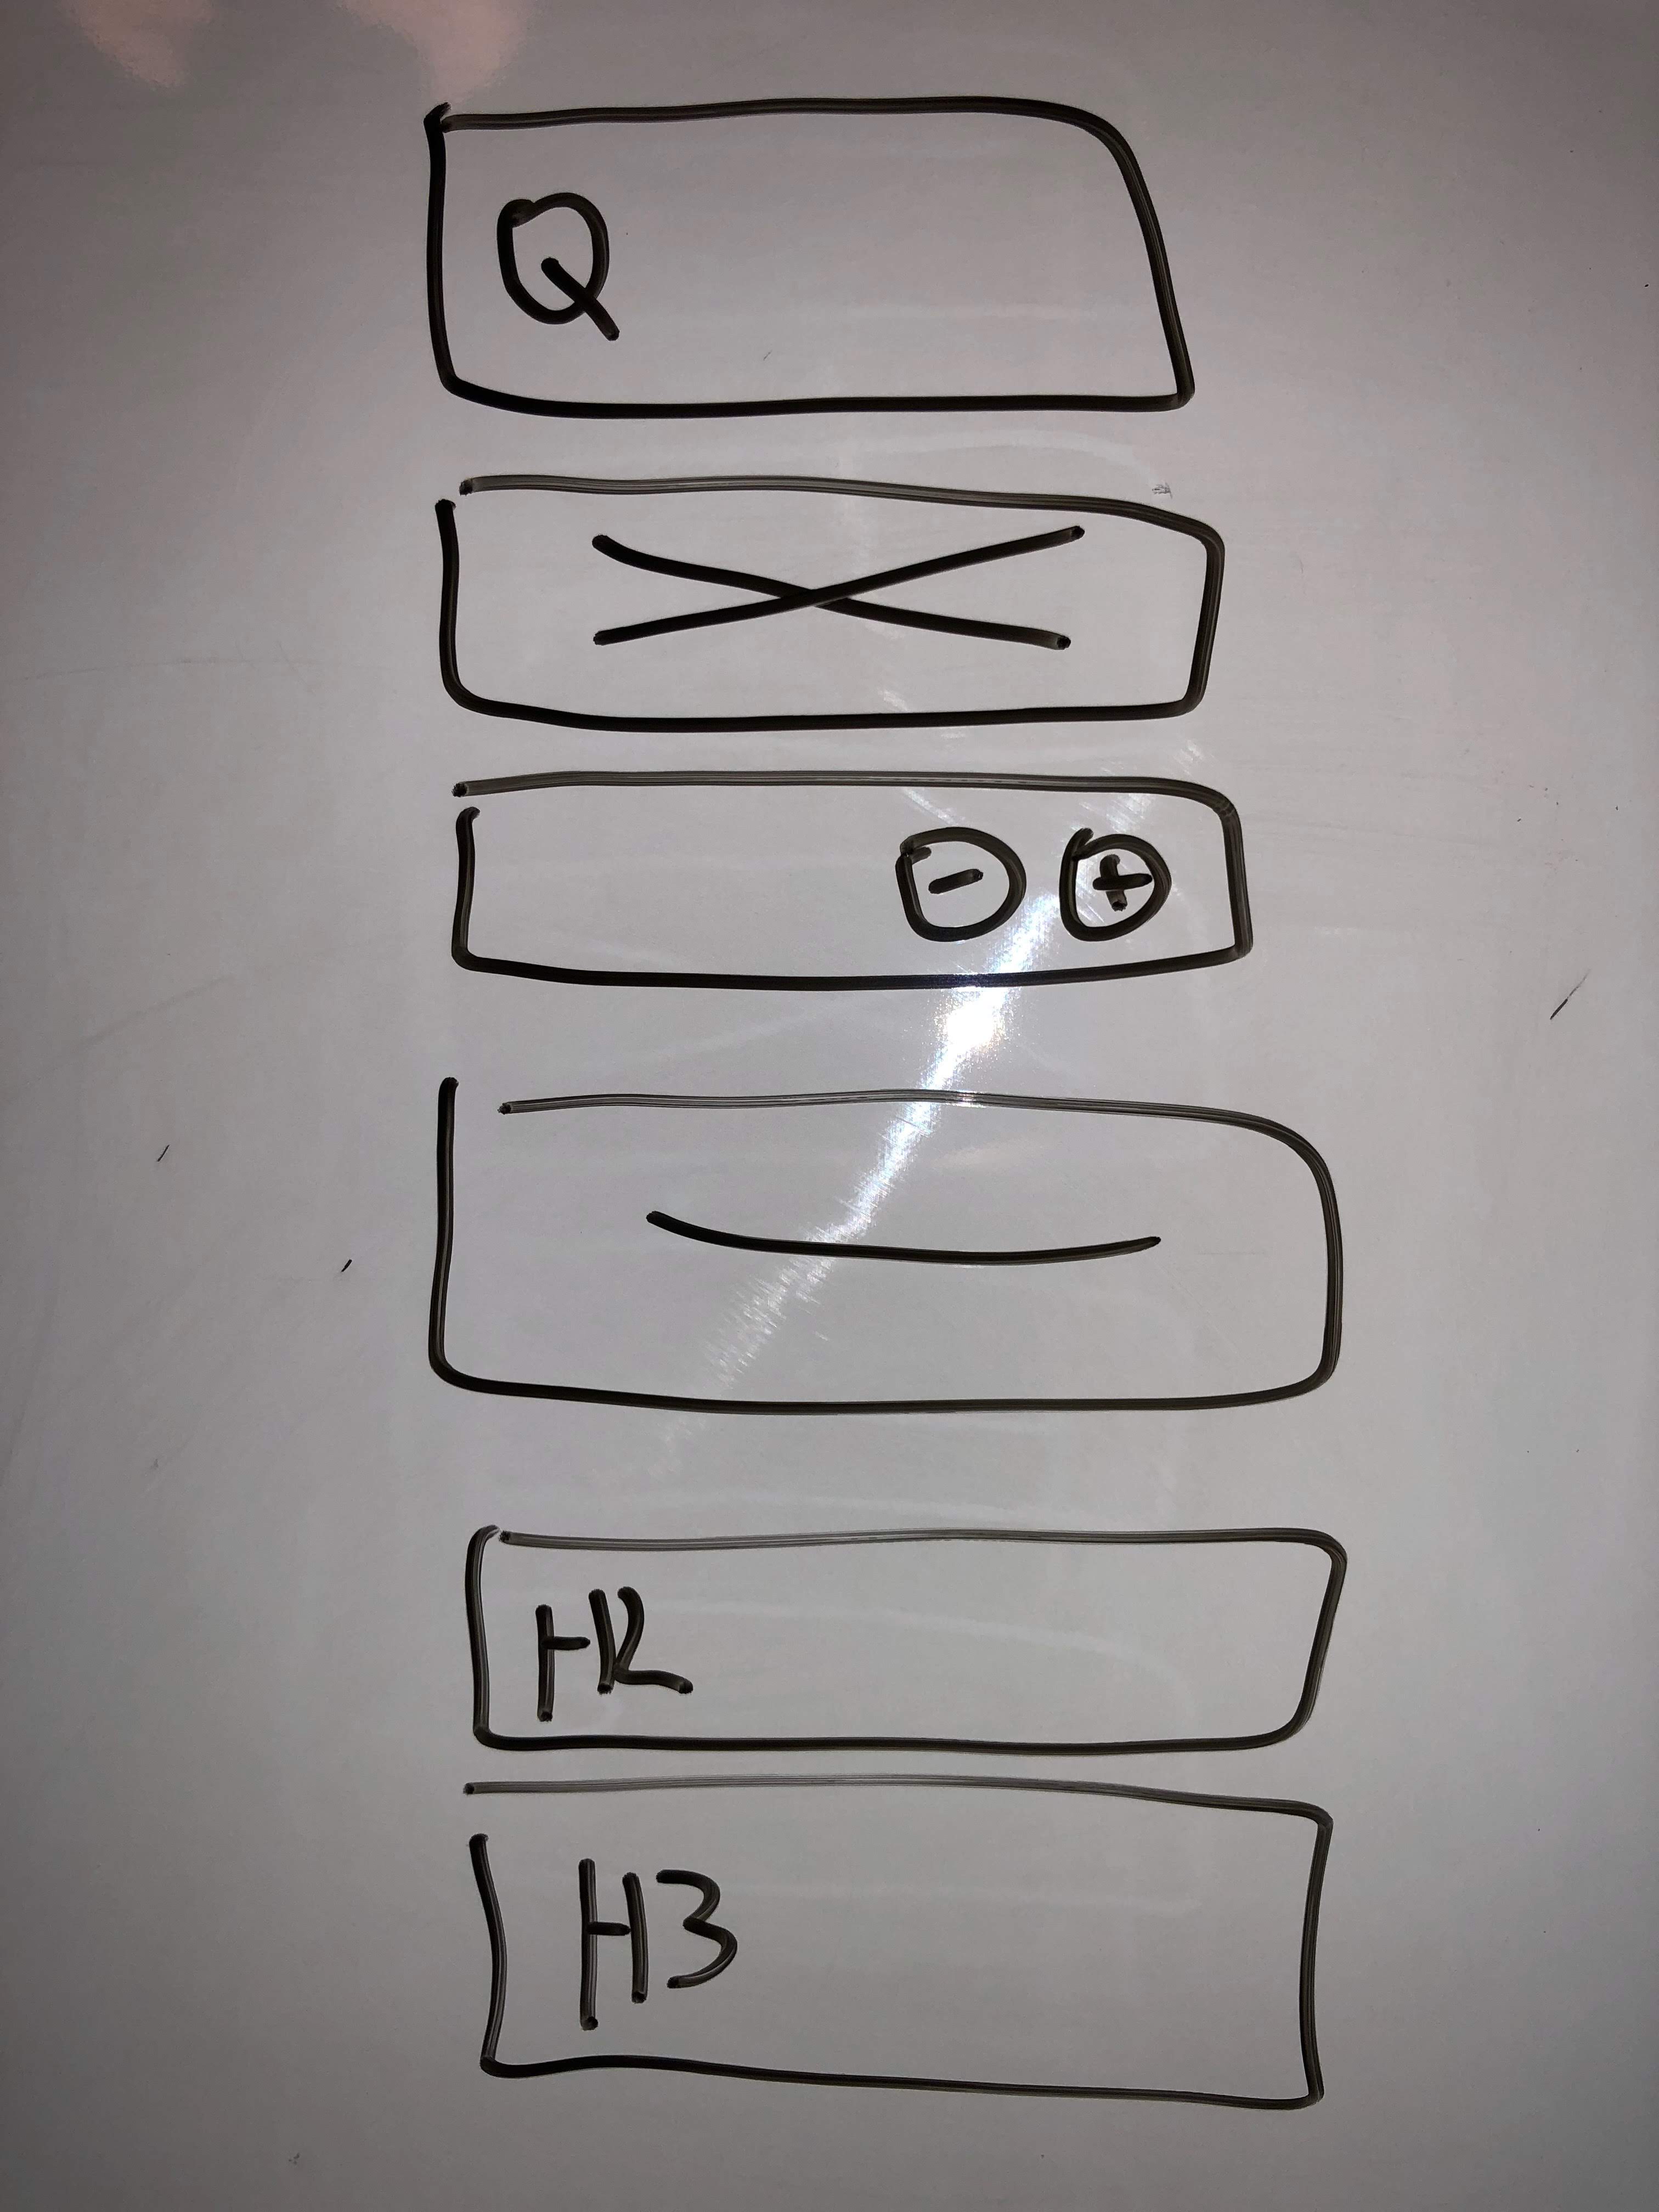 Q
- +
HR
H3